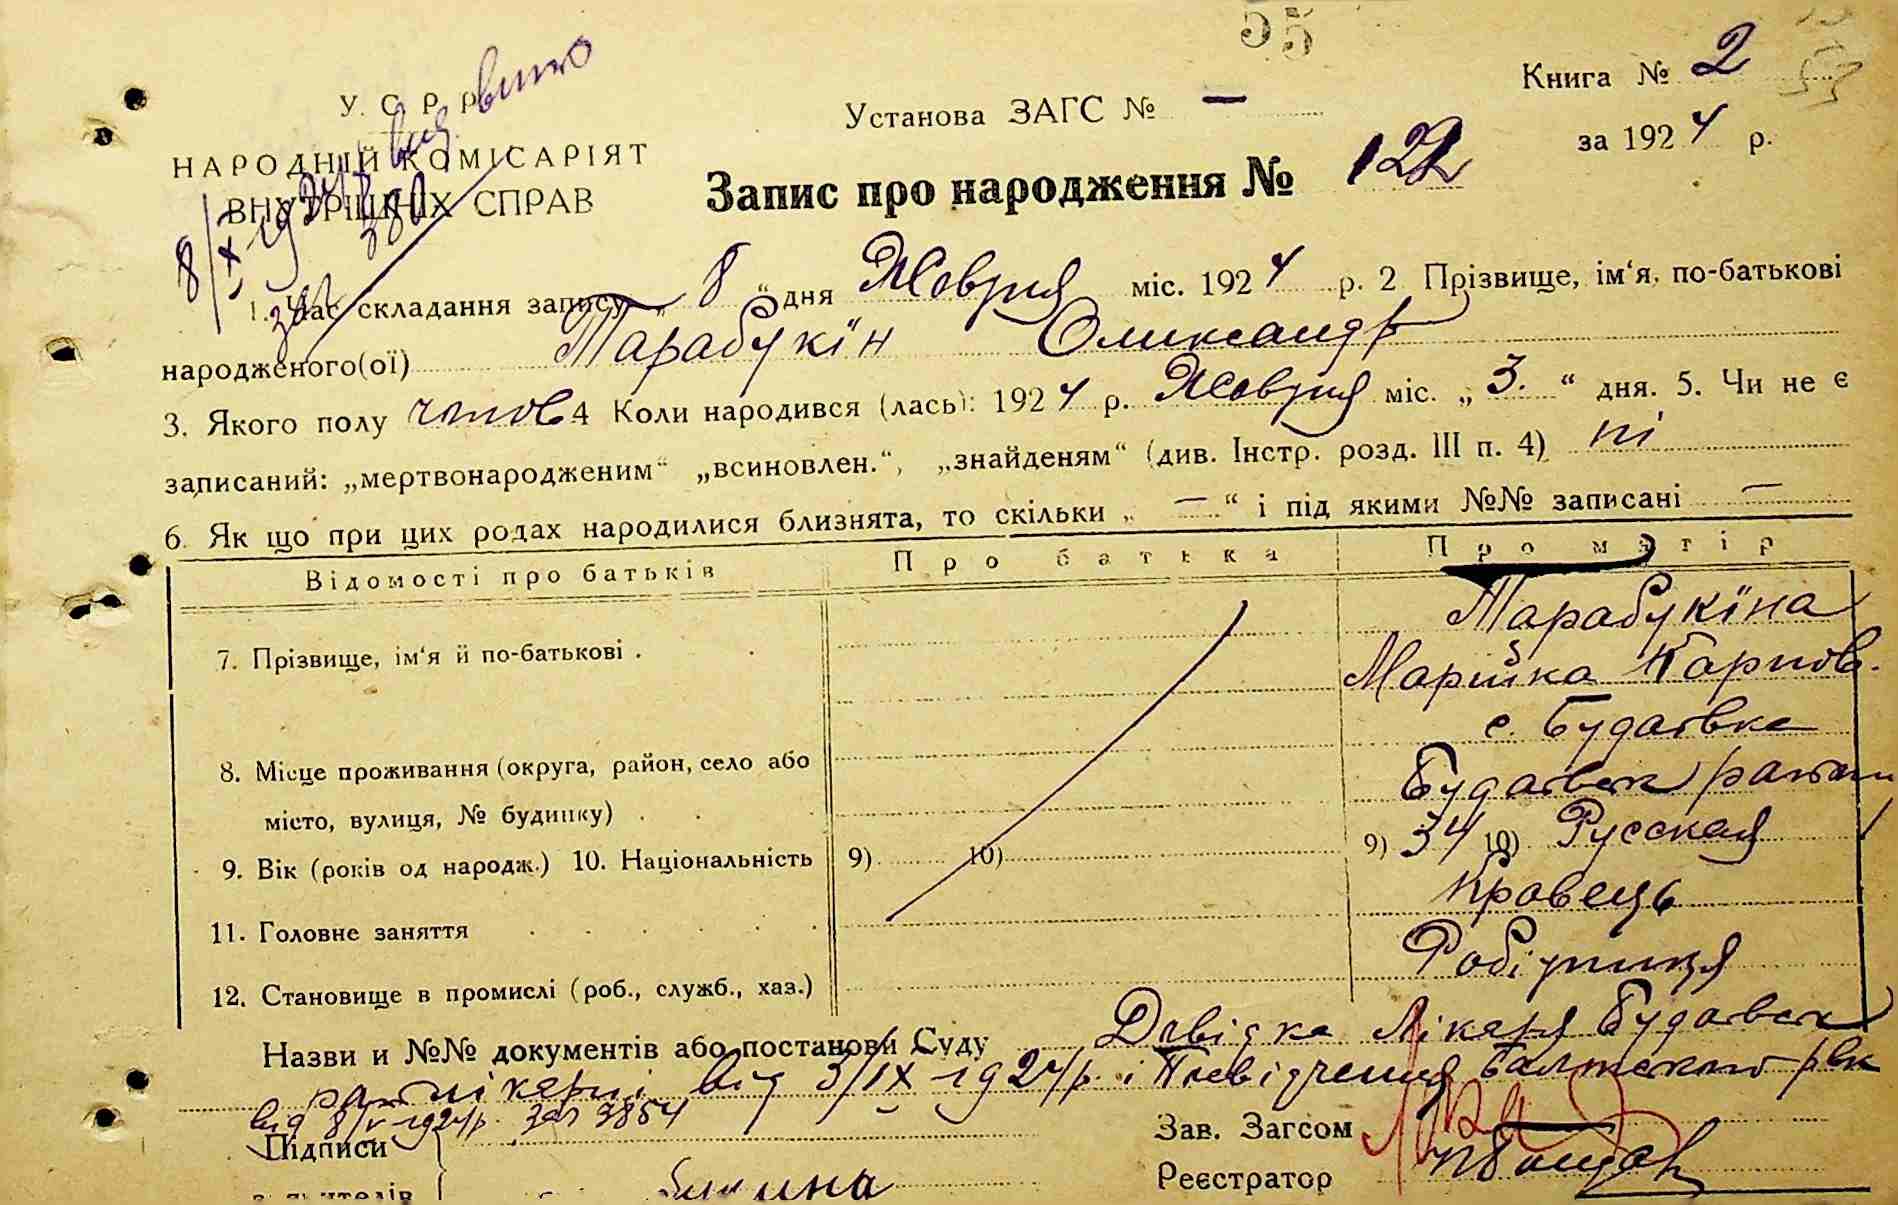 55
Книга № 2
У. С. Р. Р.
Установа ЗАГС № —
за 1924 р.
НАРОДНІЙ КОМІСАРІЯТ
ВНУТРІШНІХ СПРАВ
Запис про народження № 122
8/X 1924
1. Час складання запису „ 8 “ дня Жовтня міс. 1924 р. 2 Прізвище, ім‘я, по-батькові
народженого(ої) Тарабукін Олександр
3. Якого полу чолов 4 Коли народився (лась): 1924 р. Жовтня міс. „ 3. “ дня. 5. Чи не є
записаний: „мертвонародженим“ „всиновлен.“, „знайденям“ (див. Інстр. розд. III п. 4) ні
6. Як що при цих родах народилися близнята, то скільки „ — “ і під якими №№ записані —
Відомості про батьків Про батька Про матір
7. Прізвище, ім‘я й по-батькові . Тарабукіна
Марійка Карпов.
8. Місце проживання (округа, район, село або
місто, вулиця, № будинку) . с. Будаївка
Будаївськ району
9. Вік (років од народж.) 10. Національність 9) 10) 9) 34 10) Русская
11. Головне заняття Кравець
12. Становище в промислі (роб., служб., хаз.) Робітниця
Назви и №№ документів або постанови Суду Довідка Лікаря Будаївськ
від 3/IX 1924 р. і Посвідчення Балтского рвк
від 8/V 1924 р. 3854
Підписи
Зав. Загсом
Реєстратор
заявителів